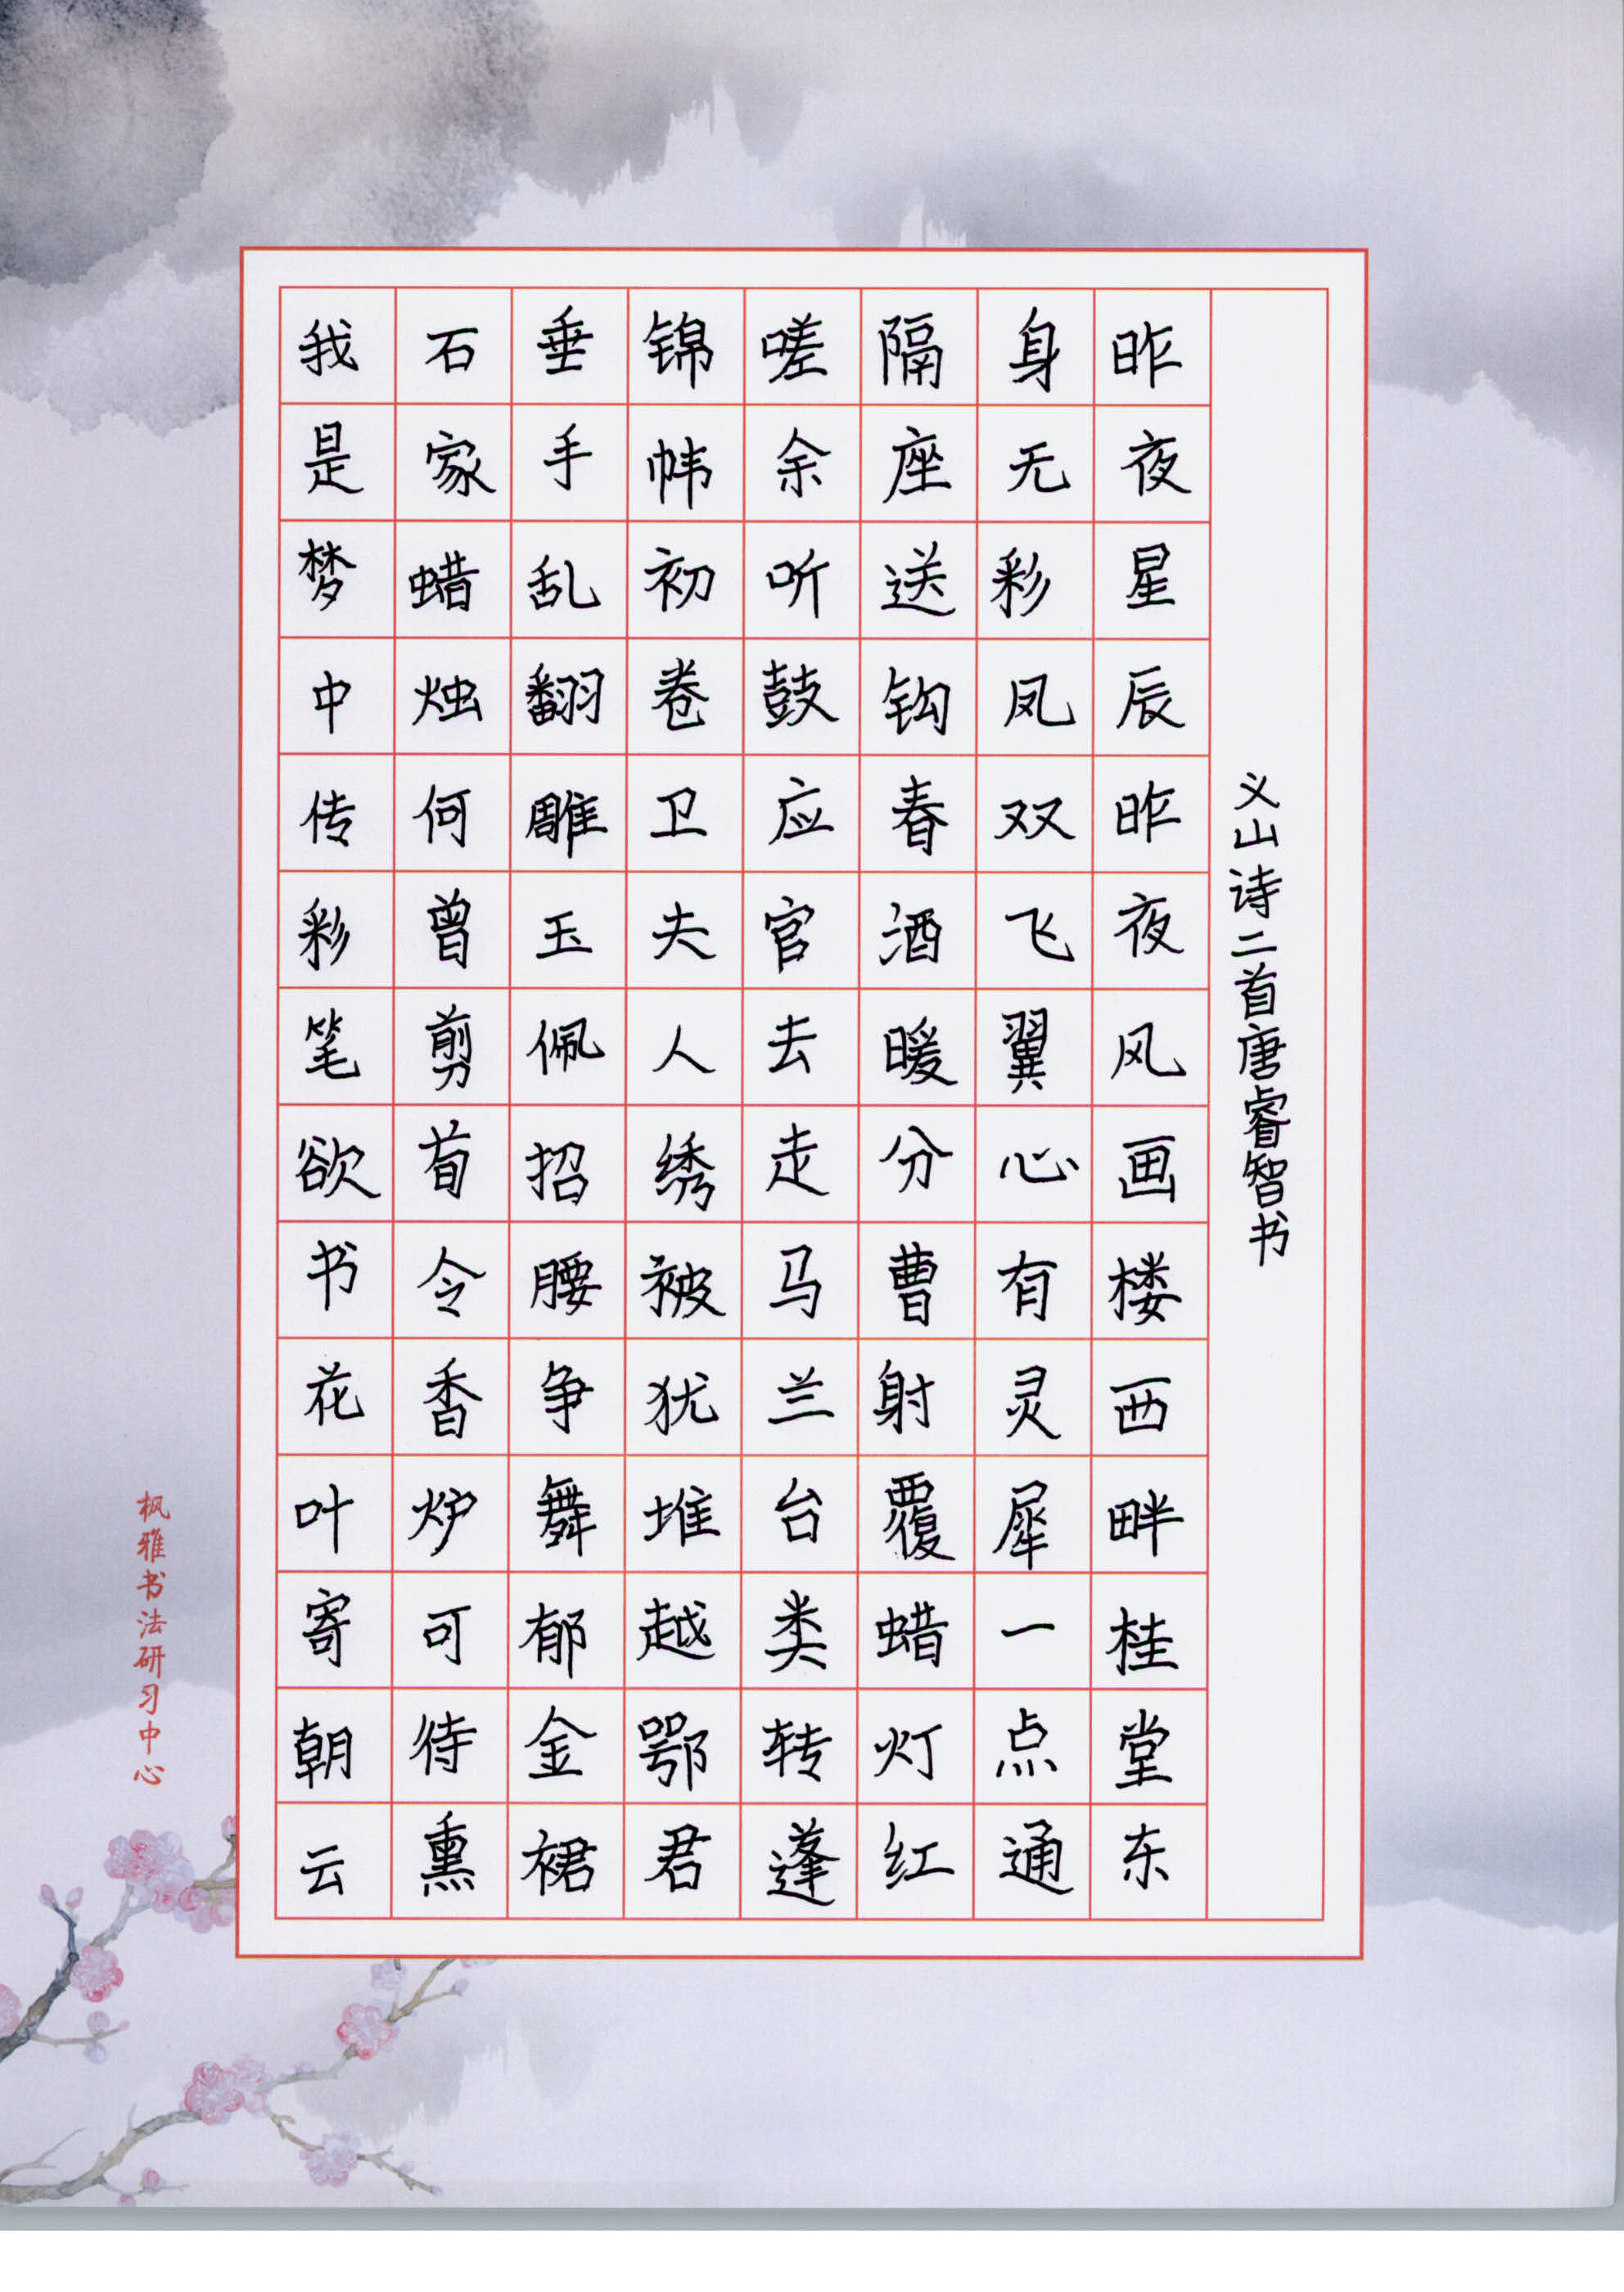 义山诗二首唐睿智书
昨夜星辰昨夜风画楼西畔桂堂东
身无彩凤双飞翼心有灵犀一点通
隔座送钩春酒暖分曹射覆蜡灯红
嗟余听鼓应官去走马兰台类转蓬
锦帏初卷卫夫人绣被犹堆越鄂君
垂手乱翻雕玉佩招腰争舞郁金裙
石家蜡烛何曾剪荀令香炉可待熏
我是梦中传彩笔欲书花叶寄朝云
枫雅书法研习中心